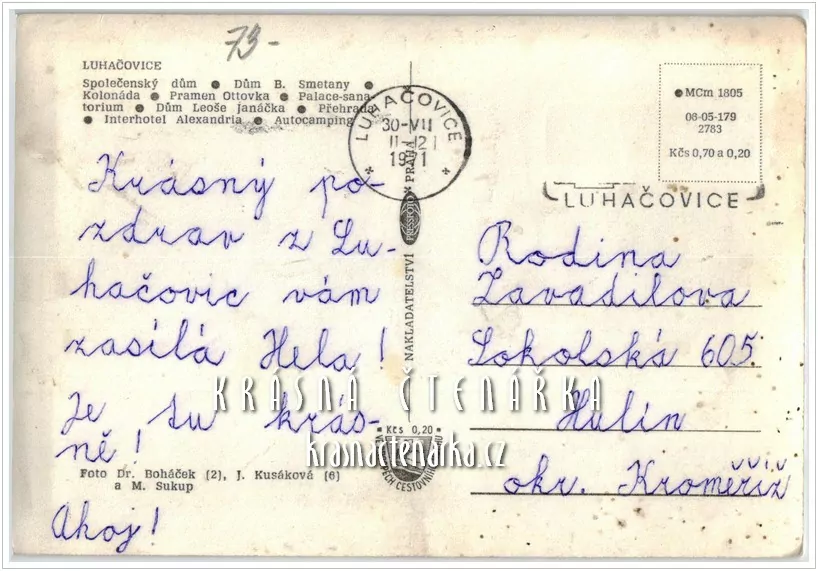 73-
LUHAČOVICE
Společenský dům ● Dům B. Smetany ●
Kolonáda ● Pramen Ottovka ● Palace-sana-
torium ● Dům Leoše Janáčka ● Přehrada
● Interhotel Alexandria ● Autocamping
LUHAČOVICE
30-VII
11-12
1971
●MCm 1805
08-05-179
2783
Kčs 0,70 a 0,20
LUHAČOVICE
Krásný po-
zdrav z Lu-
hačovic vám
zasílá Hela!
Je tu krás-
ně!
Foto Dr. Boháček (2), J. Kusáková (6)
a M. Sukup
Ahoj!
NAKLADATELSTVÍ PRESSFOTO PRAHA
Kčs 0,20
Rodina
Zavadilova
Sokolská 605
Hulín
okr. Kroměříž
KRÁSNÁ ČTENÁŘKA
krasnactenarka.cz